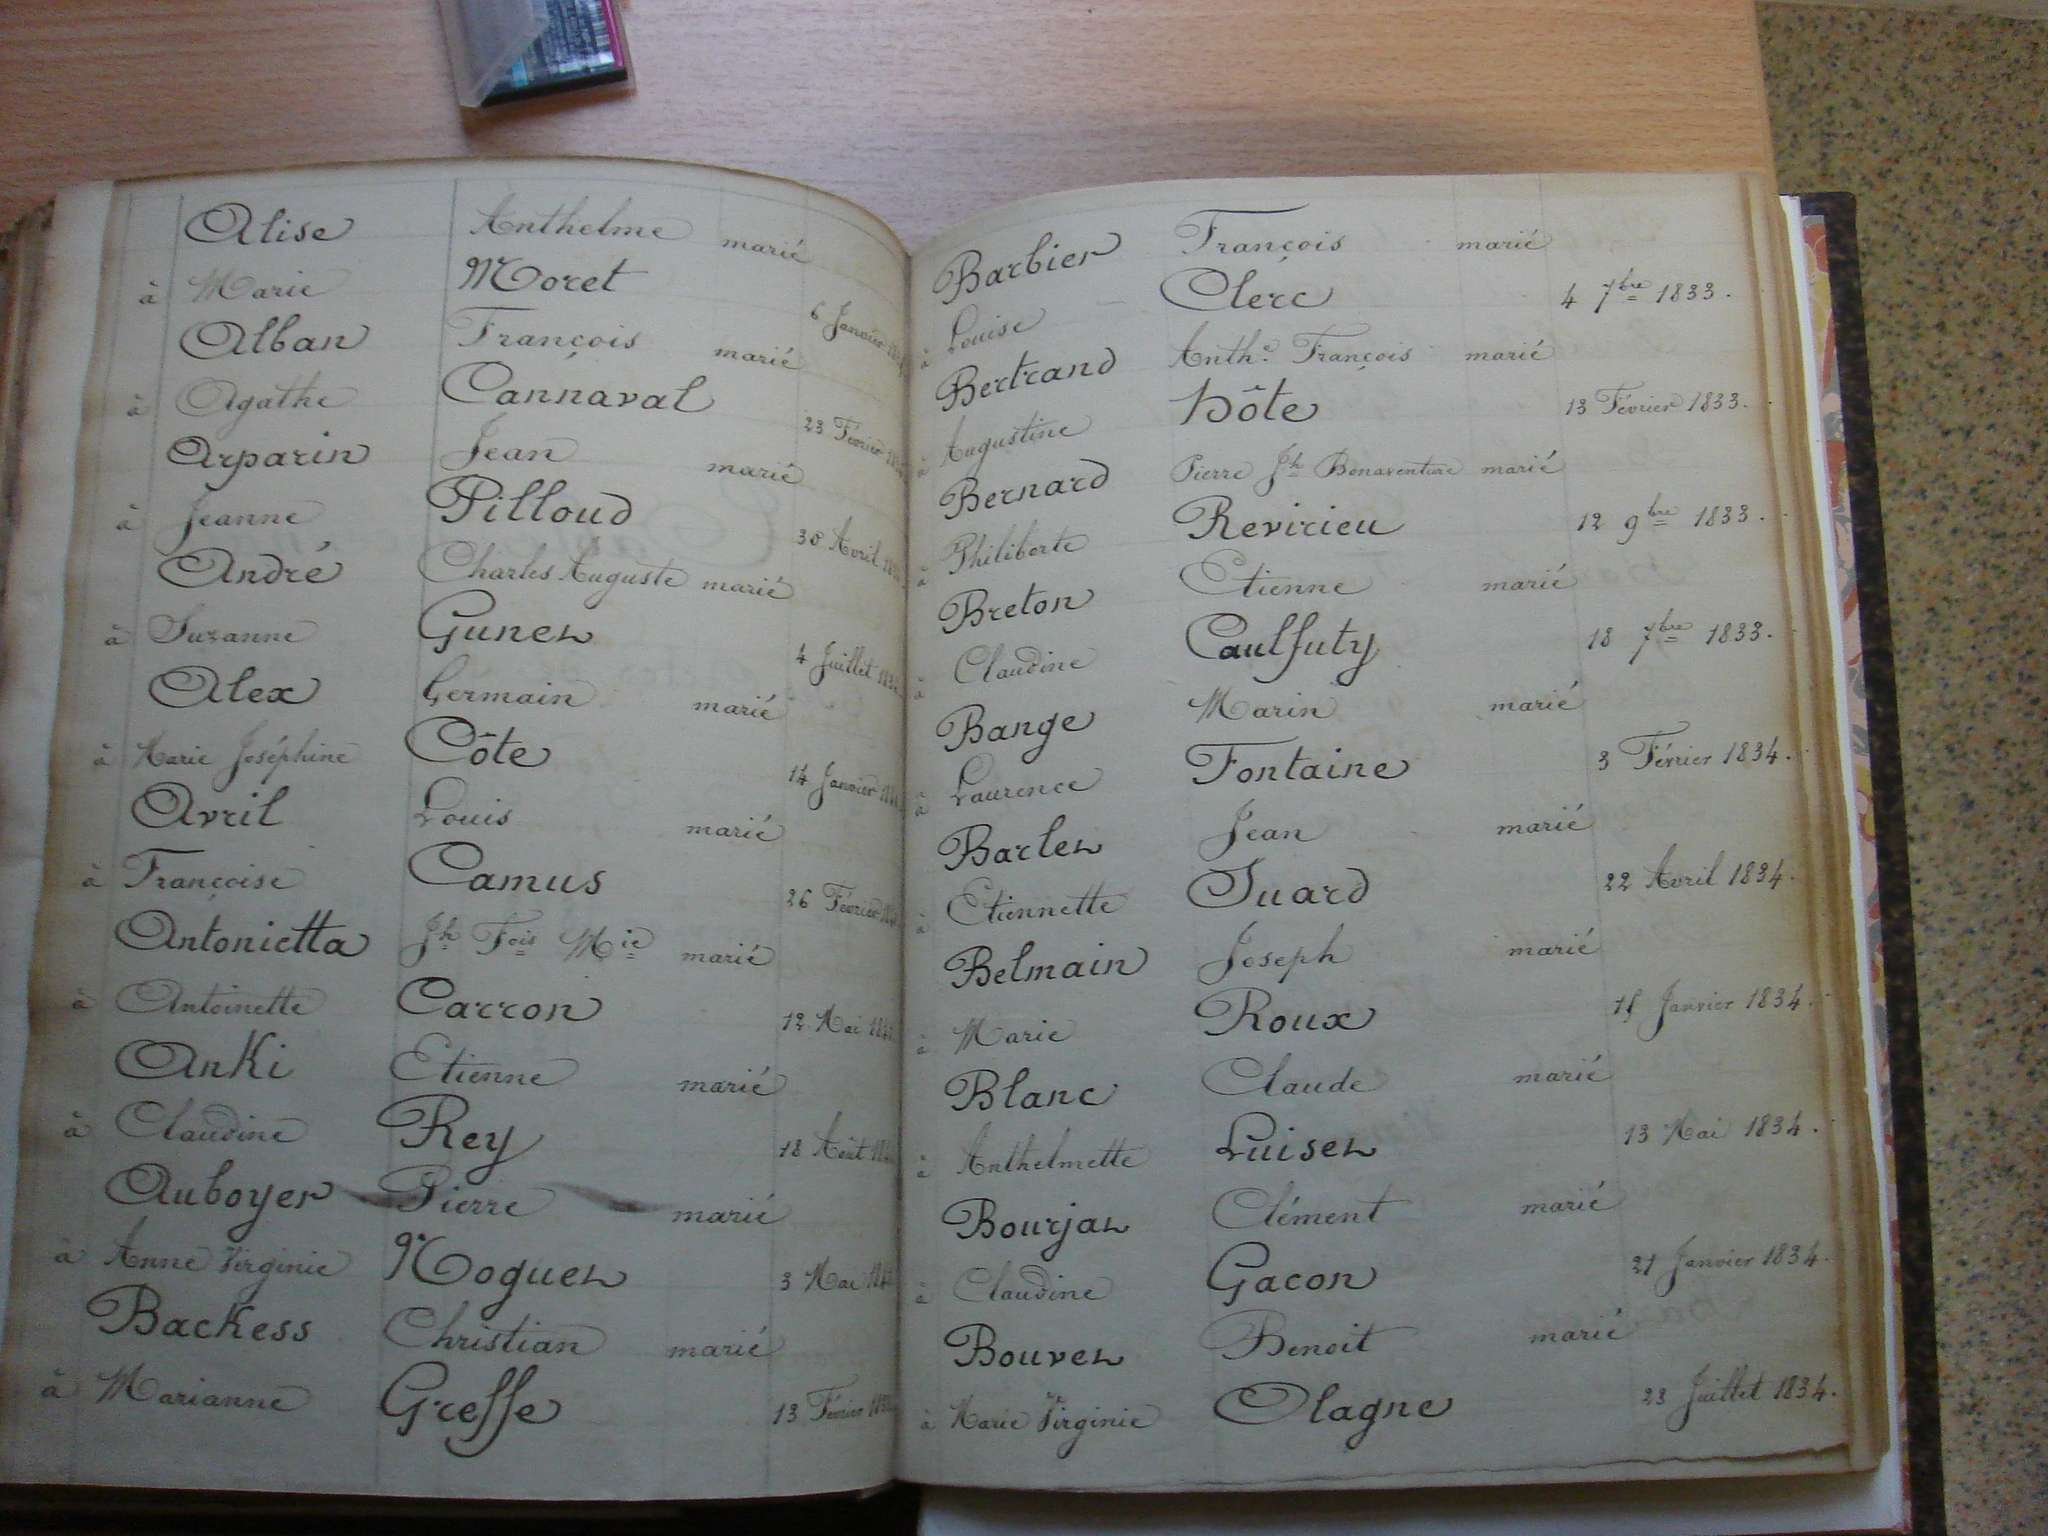 Alise Anthelme marié
à Marie Moret 6 Janvier
Alban François marié
à Agathe Cannaval 23 Février
Arparin Jean marié
à Jeanne Pilloud 30 Avril
André Charles Auguste marié
à Suzanne Gunet 4 Juillet
Alex Germain marié
à Marie Joséphine Côte 14 Janvier
Avril Louis marié
à Françoise Camus 26 Février
Antonietta Jh Fois Mie marié
à Antoinette Carron 12 Mai
Anki Etienne marié
à Claudine Rey 18 Août
Auboyer Pierre marié
à Anne Virginie Noguet 3 Mai
Backess Christian marié
à Marianne Greffe 13 Février
Barbier François marié
à Louise Clerc 4 7bre 1833.
Bertrand Anthe François marié
à Augustine Hôte 13 Février 1833.
Bernard Pierre Jh Bonaventure marié
à Philiberte Revirieu 12 9bre 1833.
Breton Etienne marié
à Claudine Caulfuty 18 7bre 1833.
Bange Marin marié
à Laurence Fontaine 3 Février 1834.
Barlet Jean marié
à Etiennette Suard 22 Avril 1834.
Belmain Joseph marié
à Marie Roux Janvier 1834.
Blanc Claude marié
à Anthelmette Luiset 13 Mai 1834.
Bourjat Clément marié
à Claudine Gacon 21 Janvier 1834.
Bouvet Benoit marié
à Marie Virginie Olagne 23 Juillet 1834.